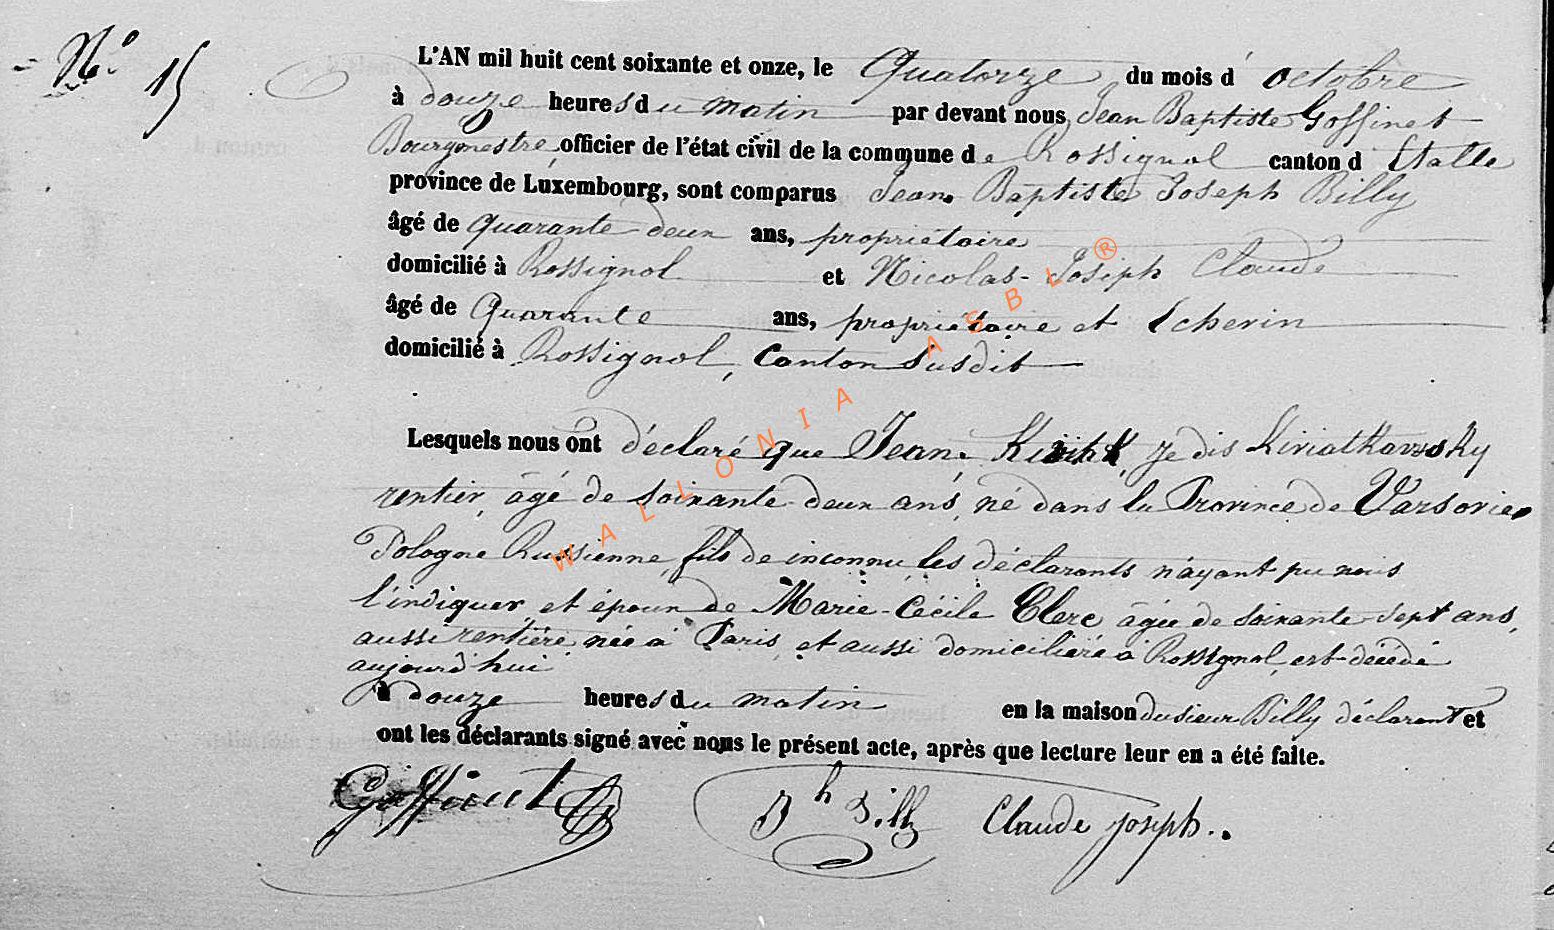 N° 15
L'AN mil huit cent soixante et onze, le Quatorze du mois d' octobre
à douze heures du matin par devant nous Jean Baptiste Goffinet
Bourgmestre officier de l'état civil de la commune de Rossignol canton d' Etalle
province de Luxembourg, sont comparus Jean Baptiste Joseph Billy
âgé de quarante deux ans, propriétaire
domicilié à Rossignol et Nicolas-Joseph Claude
âgé de Quarante ans, propriétaire et Echevin
domicilié à Rossignol, Canton susdit
Lesquels nous ont déclaré que Jean, je dis Kiviatkowsky
rentier, âgé de soixante deux ans, né dans la Province de Varsovie,
Pologne Russienne, fils de inconnu, les déclarants n'ayant pu nous
l'indiquer, et époux de Marie-Cécile Clerc âgée de soixante-sept ans,
aussi rentière, née à Paris, et aussi domiciliée à Rossignol, est décédé
aujourd'hui
à douze heures du matin en la maison du sieur Billy déclarant et
ont les déclarants signé avec nous le présent acte, après que lecture leur en a été faite.
Goffinet Jh Billy Claude joseph.
WALLONIA ASBL ®